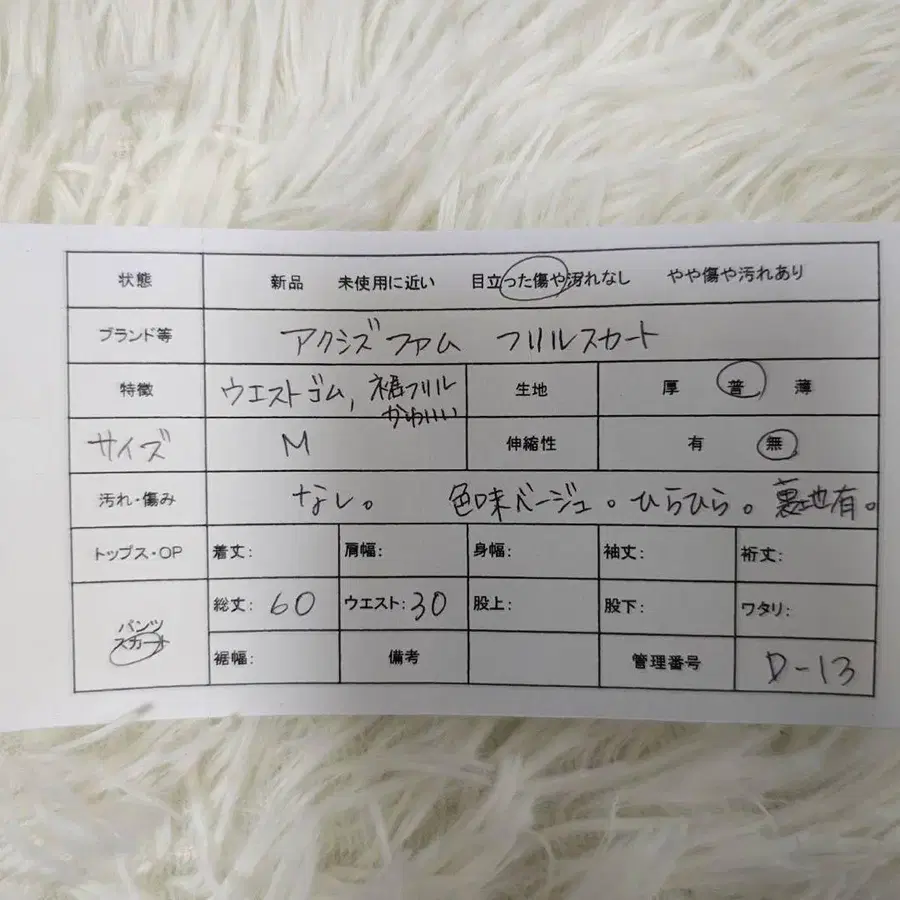 状態 新品 未使用に近い 目立った傷や汚れなし やや傷や汚れあり
ブランド等 アクシズファム フリルスカート
特徴 ウエストゴム, 裾フリル かわいい 生地 厚 普 薄
サイズ M 伸縮性 有 無
汚れ・傷み なし。 色味ベージュ。ひらひら。裏地有。
トップス・OP 着丈: 肩幅: 身幅: 袖丈: 裄丈:
パンツ スカート 総丈: 60 ウエスト: 30 股上: 股下: ワタリ:
裾幅: 備考 管理番号 D-13